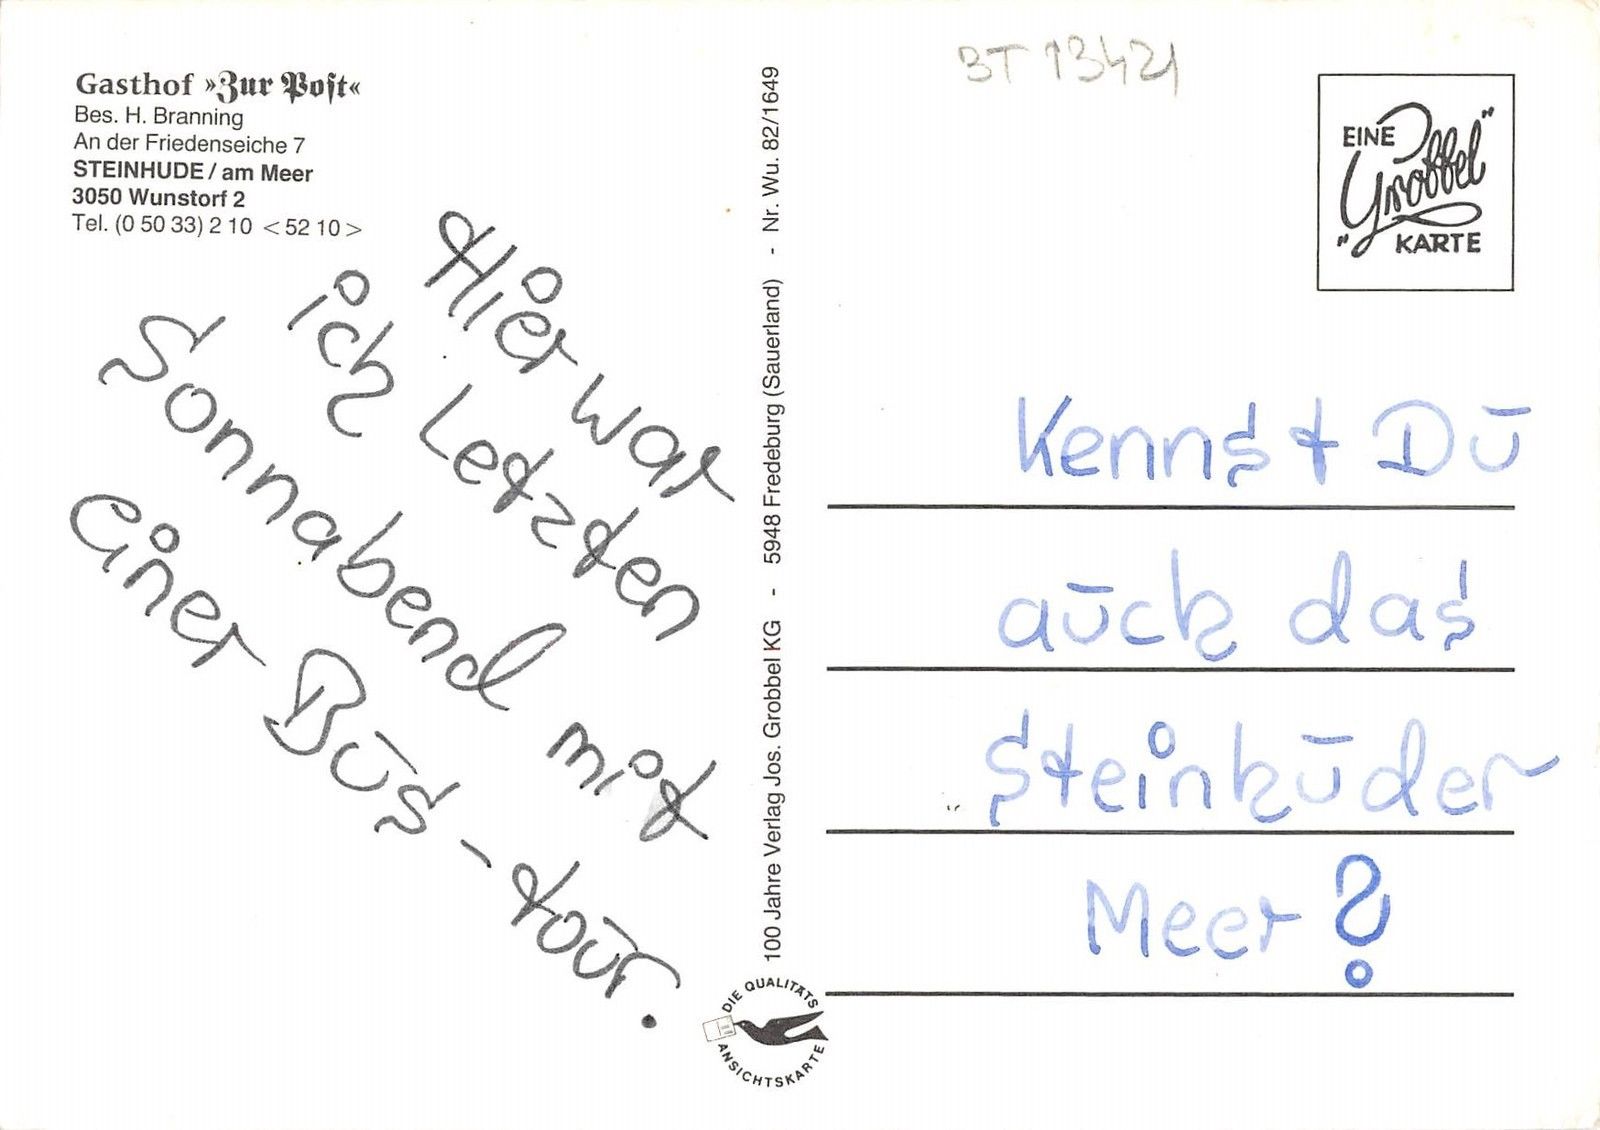 Gasthof »Zur Post«
Bes. H. Branning
An der Friedenseiche 7
STEINHUDE / am Meer
3050 Wunstorf 2
Tel. (0 50 33) 2 10 < 52 10 >
Hier war
ich Letzten
Sonnabend mit
einer Bus-tour.
100 Jahre Verlag Jos. Grobbel KG - 5948 Fredeburg (Sauerland) - Nr. Wu. 82/1649
DIE QUALITÄTS
ANSICHTSKARTE
BT 13421
EINE
"Grobbel"
KARTE
Kennst Du
auch das
Steinhuder
Meer?